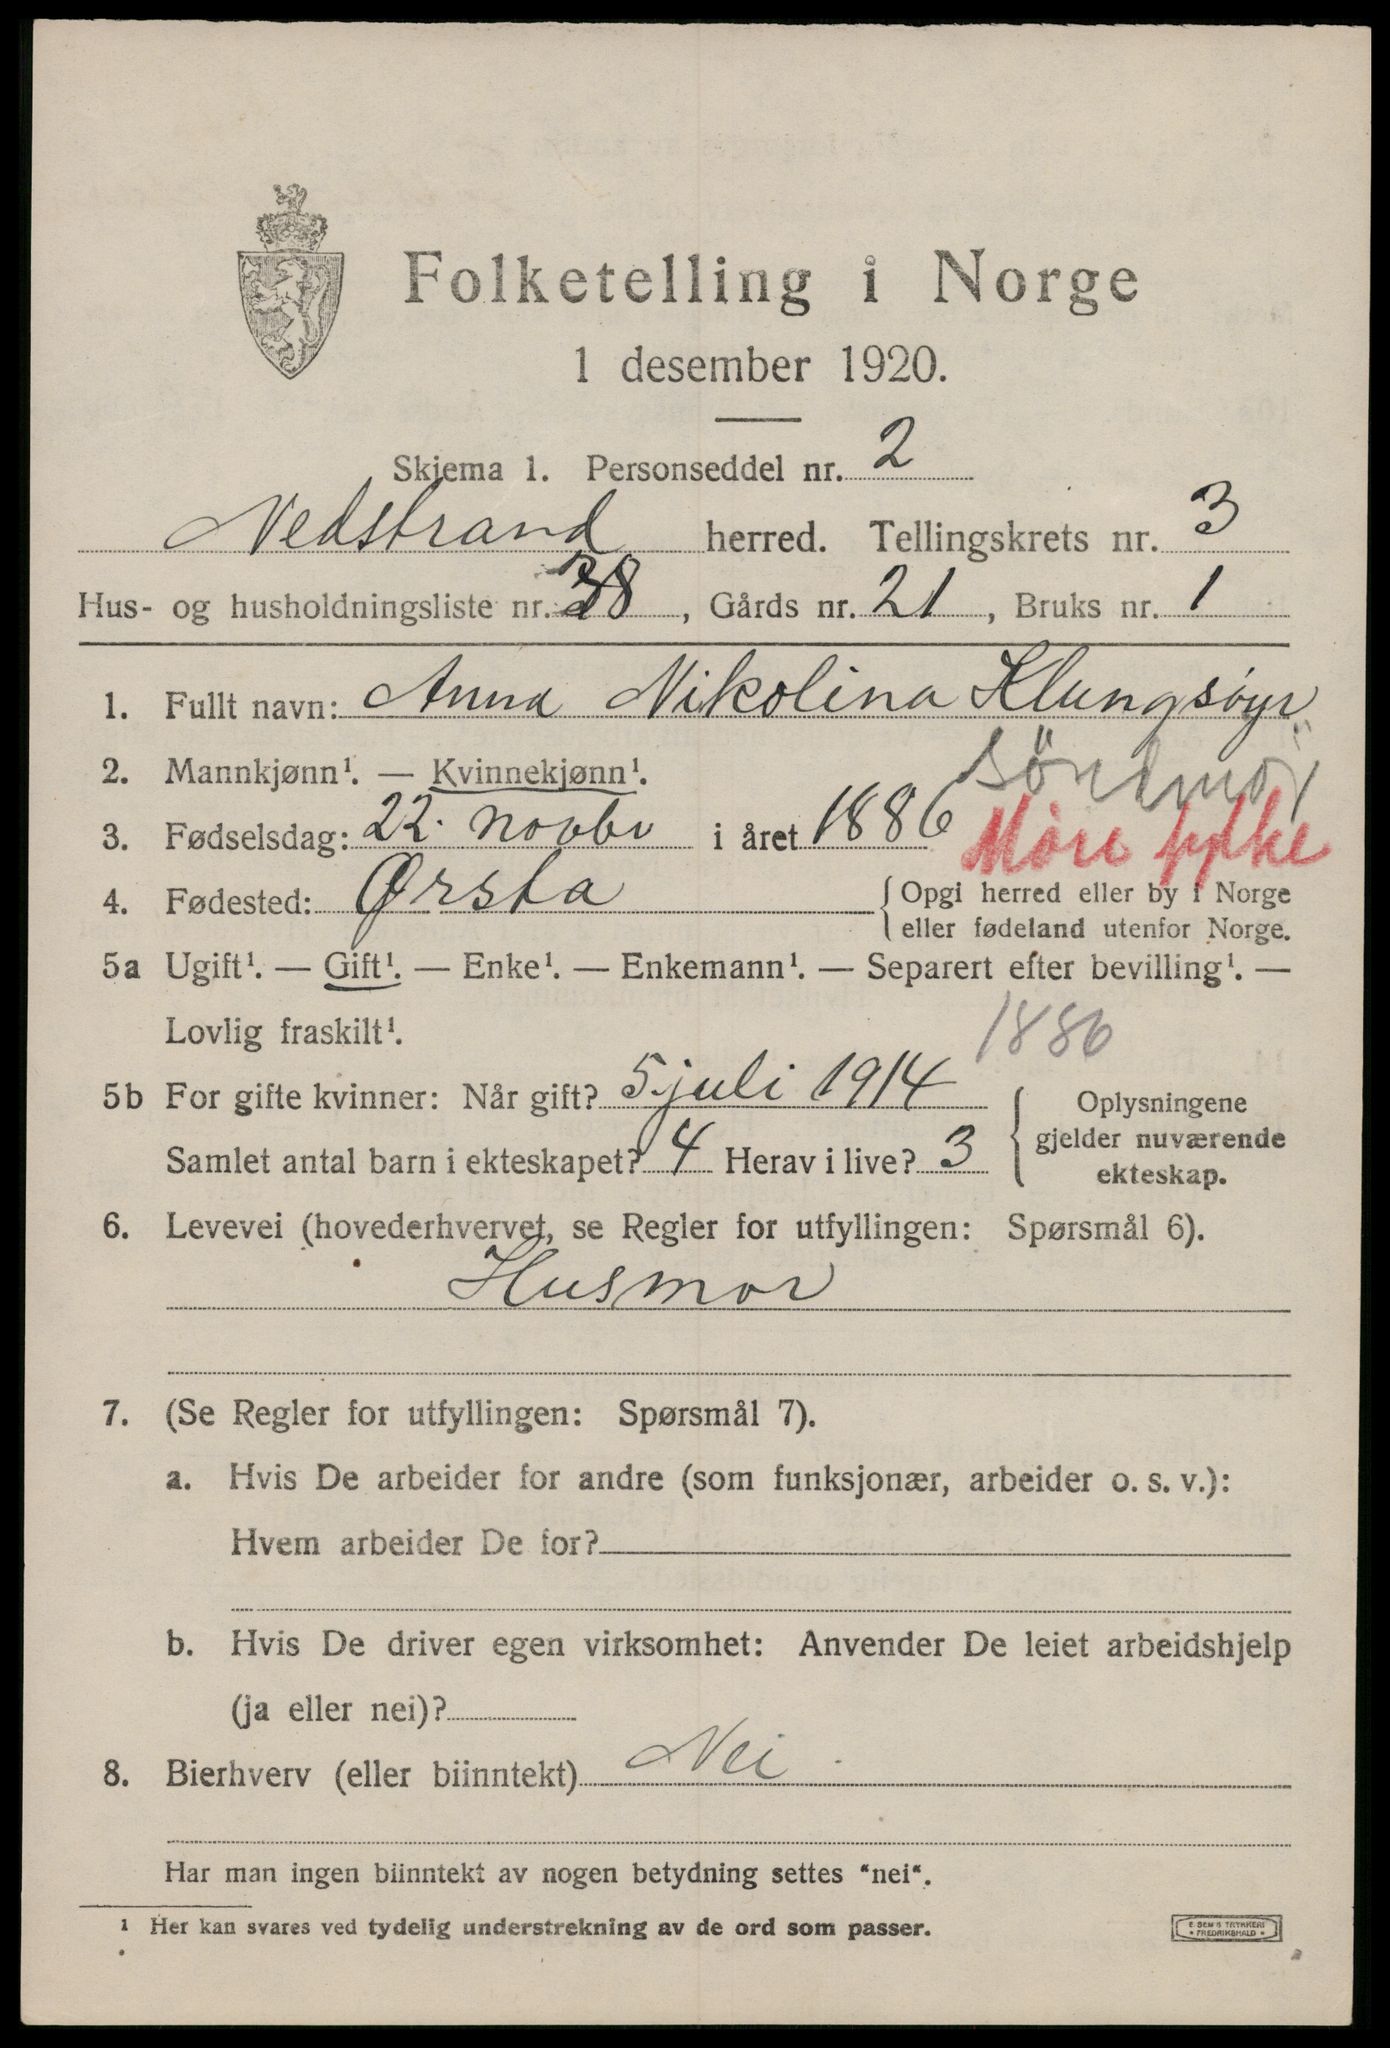 Folketelling i Norge
1 desember 1920.
Skjema 1. Personseddel nr. 2
Nedstrand herred. Tellingskrets nr. 3
Hus- og husholdningsliste nr. 38, Gårds nr. 21, Bruks nr. 1
1. Fullt navn: Anna Nikolina Klungsöyr
Söndmör
2. Mannkjønn¹. — Kvinnekjønn¹.
3. Fødselsdag: 22. novbr i året 1886
Møre fylke
4. Fødested: Ørsta {Opgi herred eller by i Norge
eller fødeland utenfor Norge.
5a Ugift¹. — Gift¹. — Enke¹. — Enkemann¹. — Separert efter bevilling¹. —
Lovlig fraskilt¹.
1886
5b For gifte kvinner: Når gift? 5 juli 1914
Samlet antal barn i ekteskapet? 4 Herav i live? 3
{Oplysningene
gjelder nuværende
ekteskap.
6. Levevei (hovederhvervet, se Regler for utfyllingen: Spørsmål 6).
Husmor
7. (Se Regler for utfyllingen: Spørsmål 7).
a. Hvis De arbeider for andre (som funksjonær, arbeider o. s. v.):
Hvem arbeider De for?
b. Hvis De driver egen virksomhet: Anvender De leiet arbeidshjelp
(ja eller nei)?
8. Bierhverv (eller biinntekt) Nei.
Har man ingen biinntekt av nogen betydning settes "nei".
¹ Her kan svares ved tydelig understrekning av de ord som passer.
E SEM'S TRYKKERI
* FREDRIKSHALD *